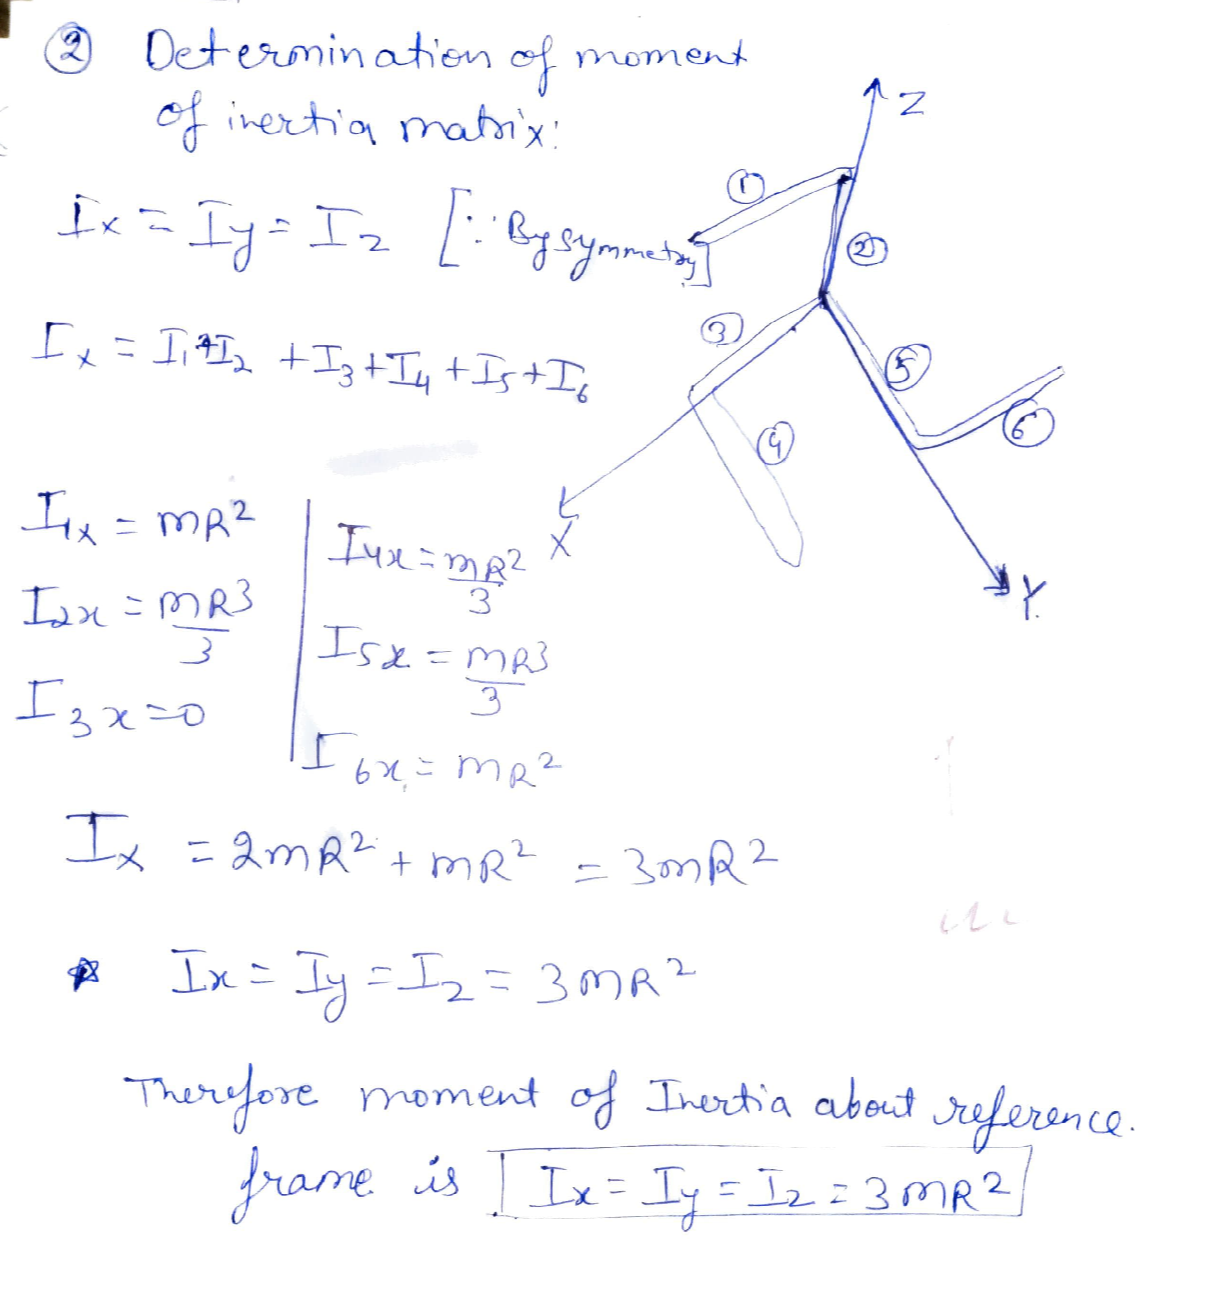 ② Determination of moment
of inertia matrix:
Ix = Iy = Iz [∵ By symmetry]
Ix = I1+I2 +I3+I4 +I5+I6
I1x = mR²
I2x = mR3/3
I3x=0
I4x=mR2/3
I5x = mR3/3
I6x = mR²
Ix = 2mR² + mR² = 3mR²
Ix = Iy = Iz = 3mR²
Therefore moment of Inertia about reference.
frame is Ix = Iy = Iz = 3mR²
Z
①
②
③
④
⑤
⑥
X
Y.